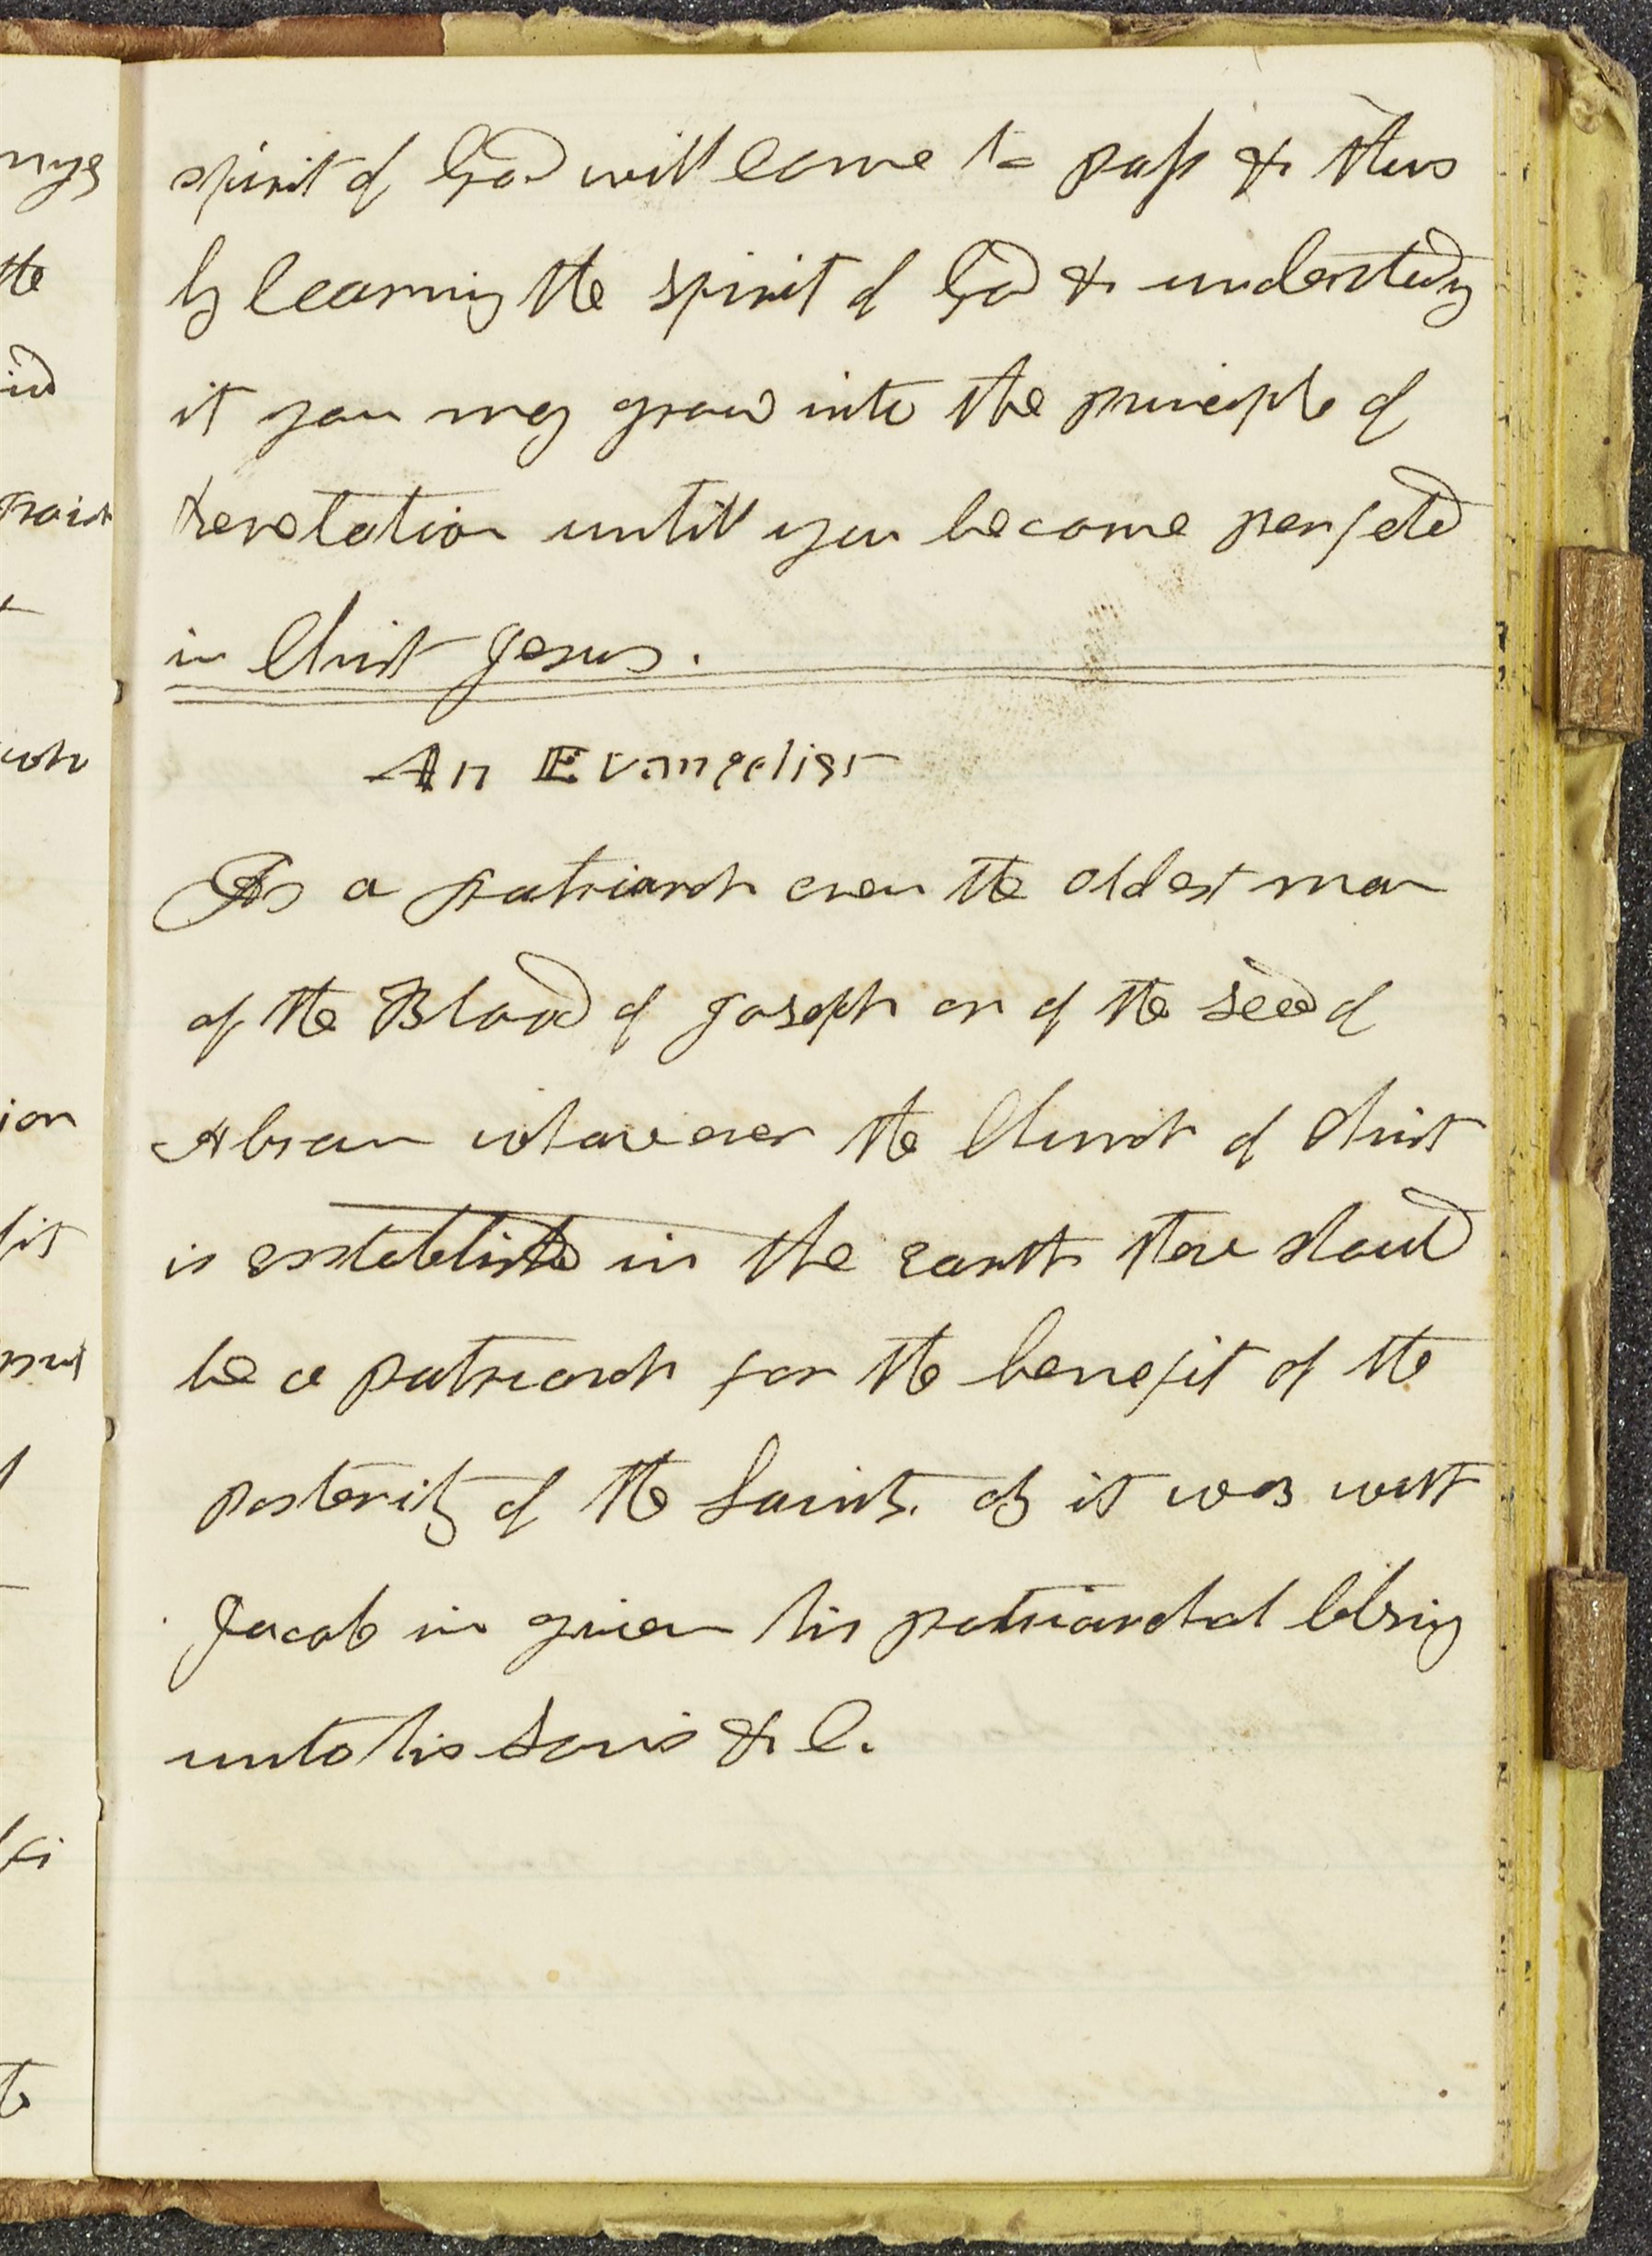 spirit of God will come to pass & thus
by learning the spirit of God & understadig
it you may grow into the principle of
Revelation untill you become perfeted
in Christ Jesus.
An Evangelist
Is a patriarch even the oldest man
of the Blood of Joseph or of the seed of
Abram whareever the Church of Christ
is esstablishd in the earth thare should
be a patriarch for the benefit of the
posterity of the Saints. as it was with
Jacob in given his patriarchal blesing
unto his Sons &c.